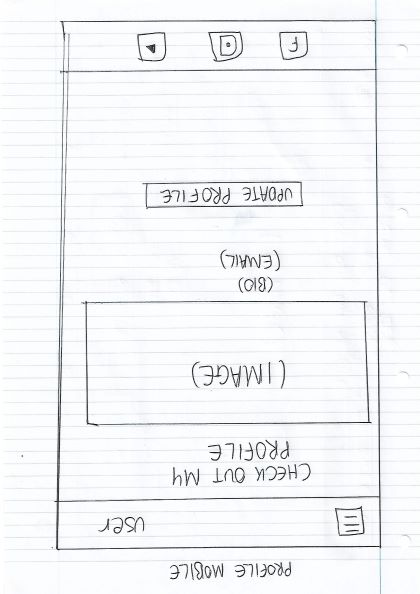 PROFILE MOBILE
user
CHECK OUT MY
PROFILE
(IMAGE)
(BIO)
(EMAIL)
UPDATE PROFILE
F